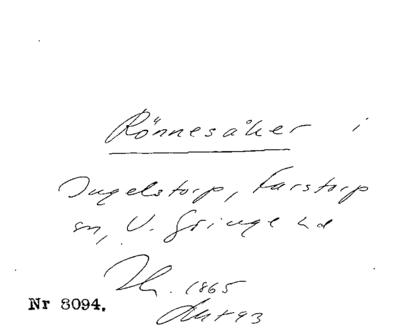 Rönnesåker i
Ingelstorp, Farstorp
sn, V. Göinge hd
1865
Nr 8094.